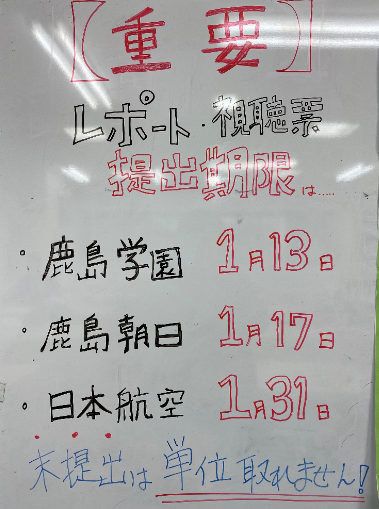 【重要】
レポート・視聴票
提出期限は……
・鹿島学園 1月13日
・鹿島朝日 1月17日
・日本航空 1月31日
未提出は単位取れません!